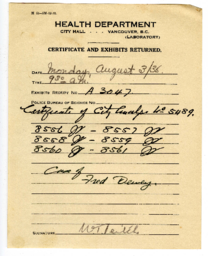 HEALTH DEPARTMENT
CITY HALL VANCOUVER, B.C.
(LABORATORY)
CERTIFICATE AND EXHIBITS RETURNED.
DATE, Monday, August 3/36
TIME, 9:30 a.m.
EXHIBITS REPORT NO. A 3047
POLICE BUREAU OF SCIENCE NO.
Certificate of City Analyst No 5489.
8556 - 8557
8558 - 8559
8560 - 8561
Case of
Fred Dewey.
SIGNATURE